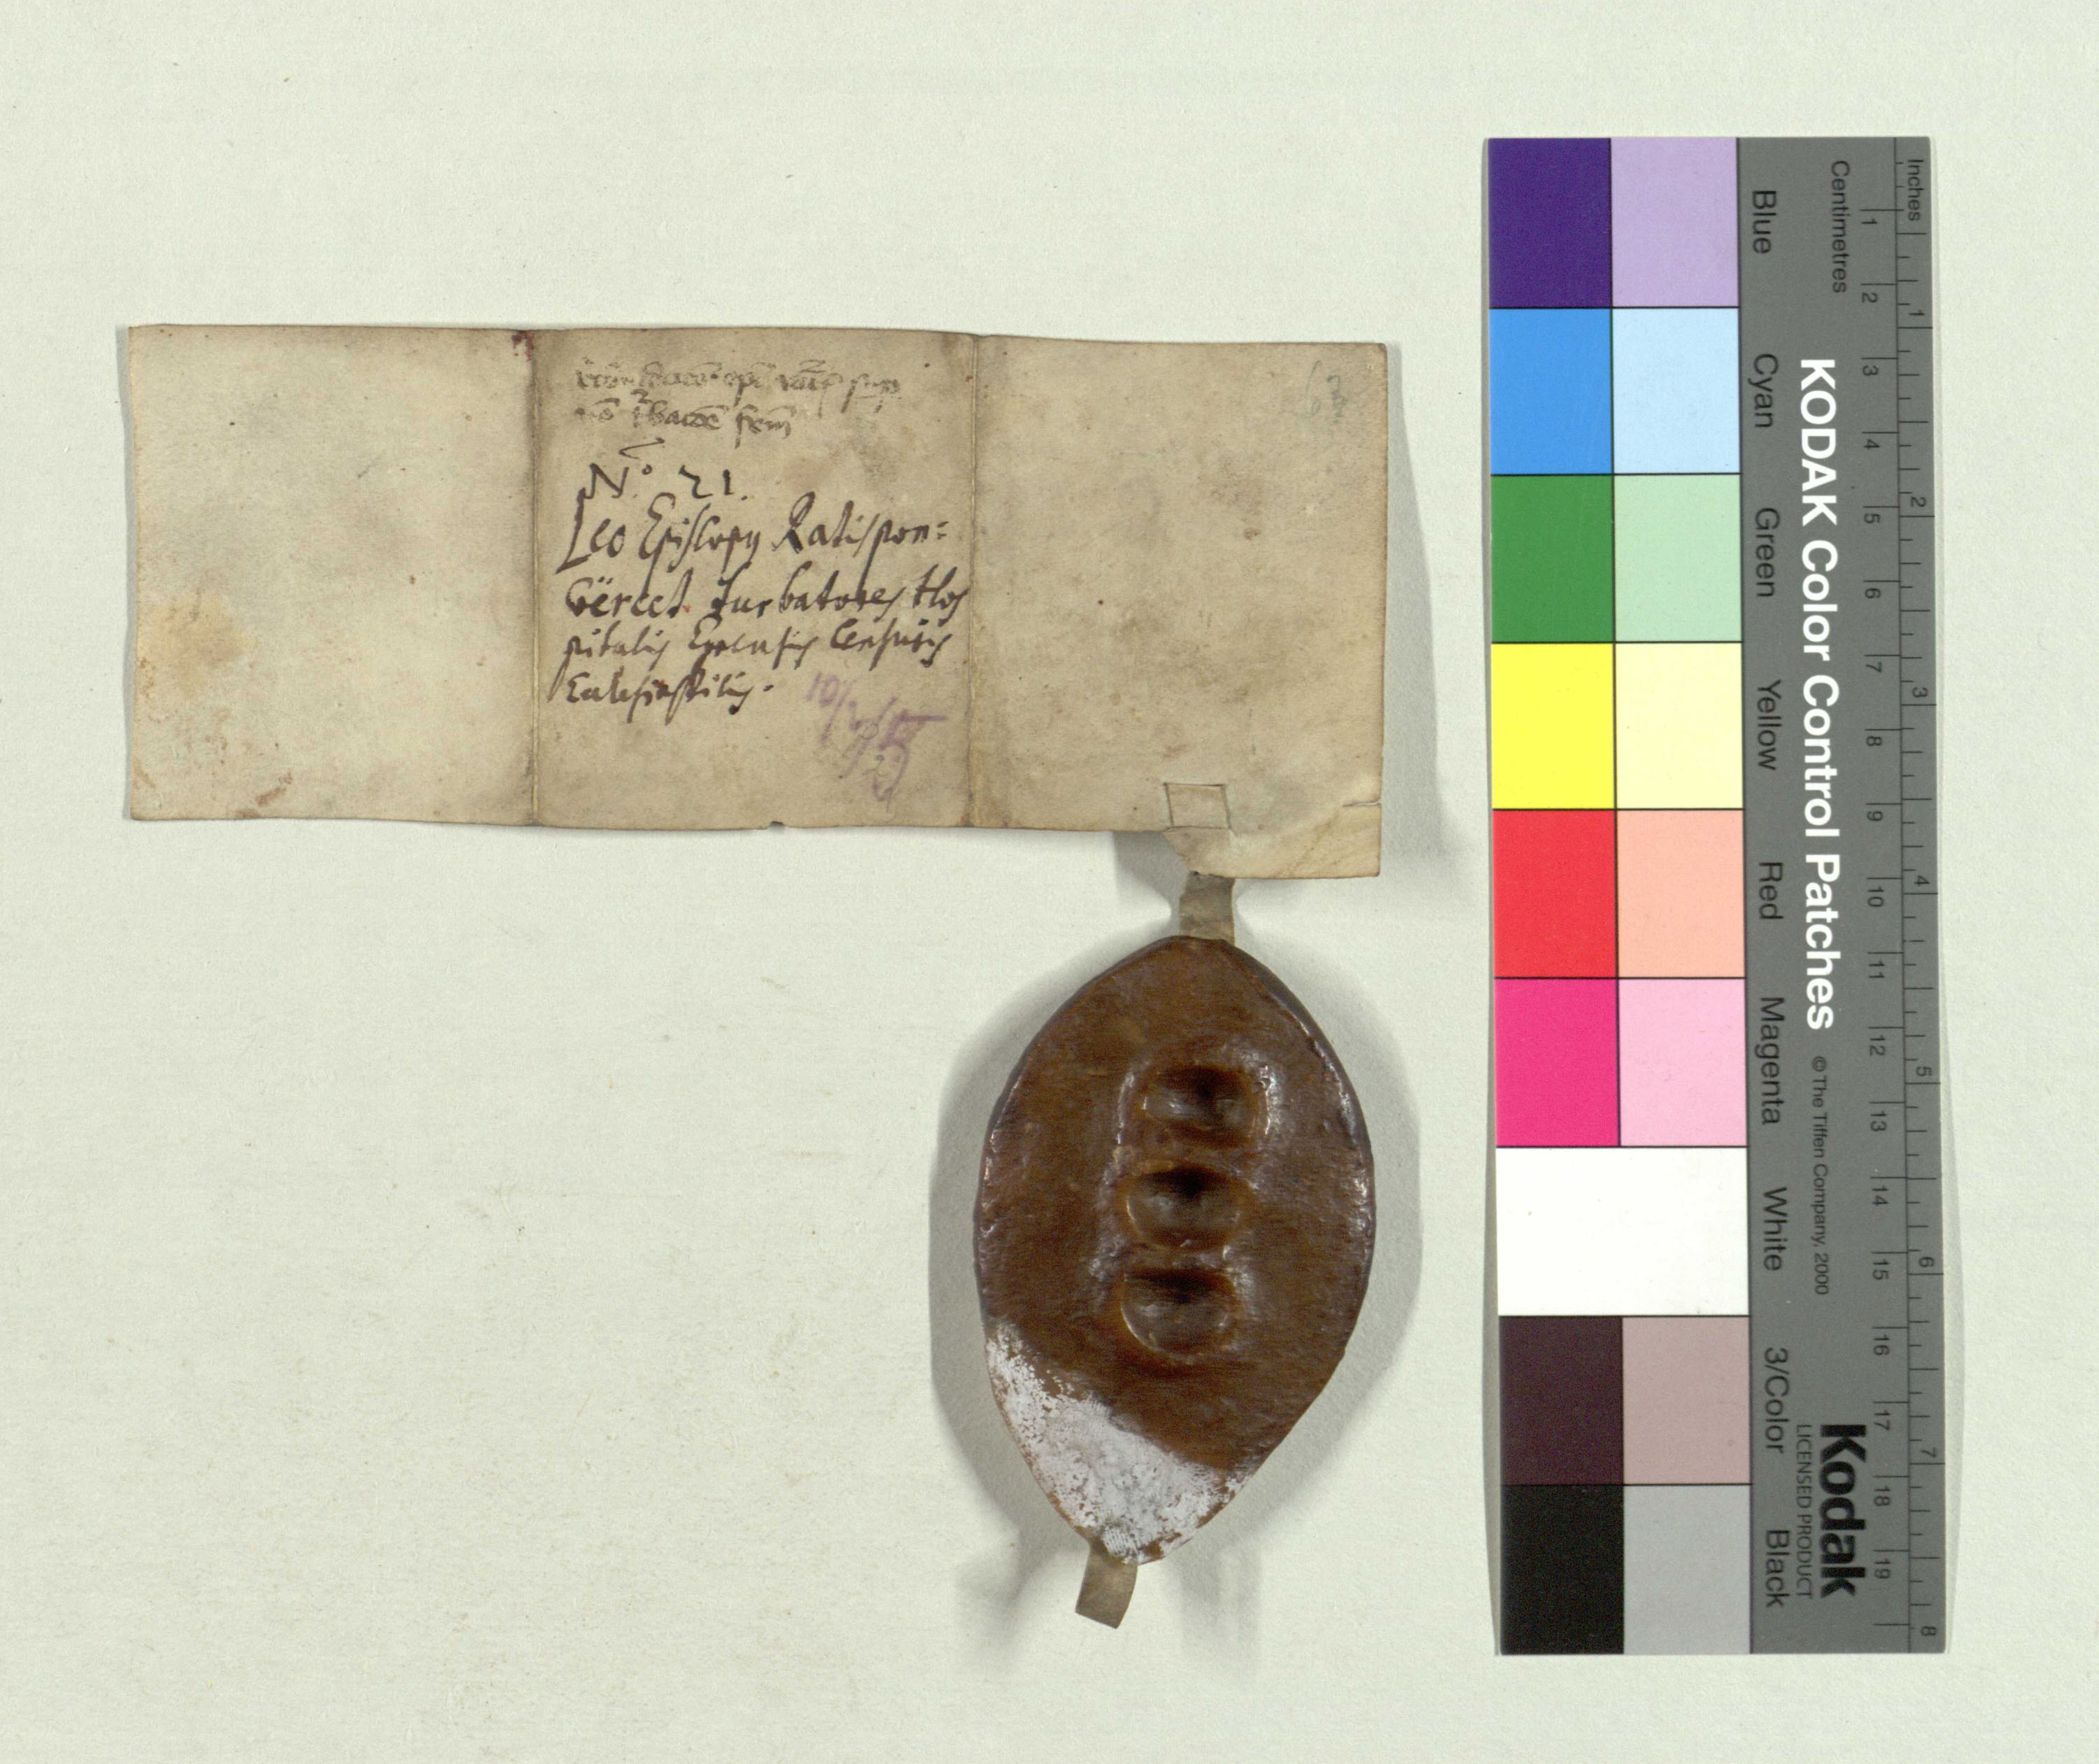 N.° 21.
Leo Episcopq Ratispon:
Coercet turbatores Hos
pitalis Egrensis Censuris
Ecclesiasticis.
10/
Inches
Centimetres
1 2 3 4 5 6 7 8
1 2 3 4 5 6 7 8 9 10 11 12 13 14 15 16 17 18 19
KODAK Color Control Patches
© The Tiffen Company, 2000
Kodak
LICENSED PRODUCT
Blue
Cyan
Green
Yellow
Red
Magenta
White
3/Color
Black